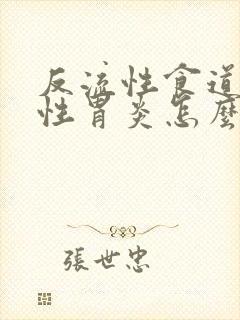 反流性食道
性胃炎怎麼
張世忠